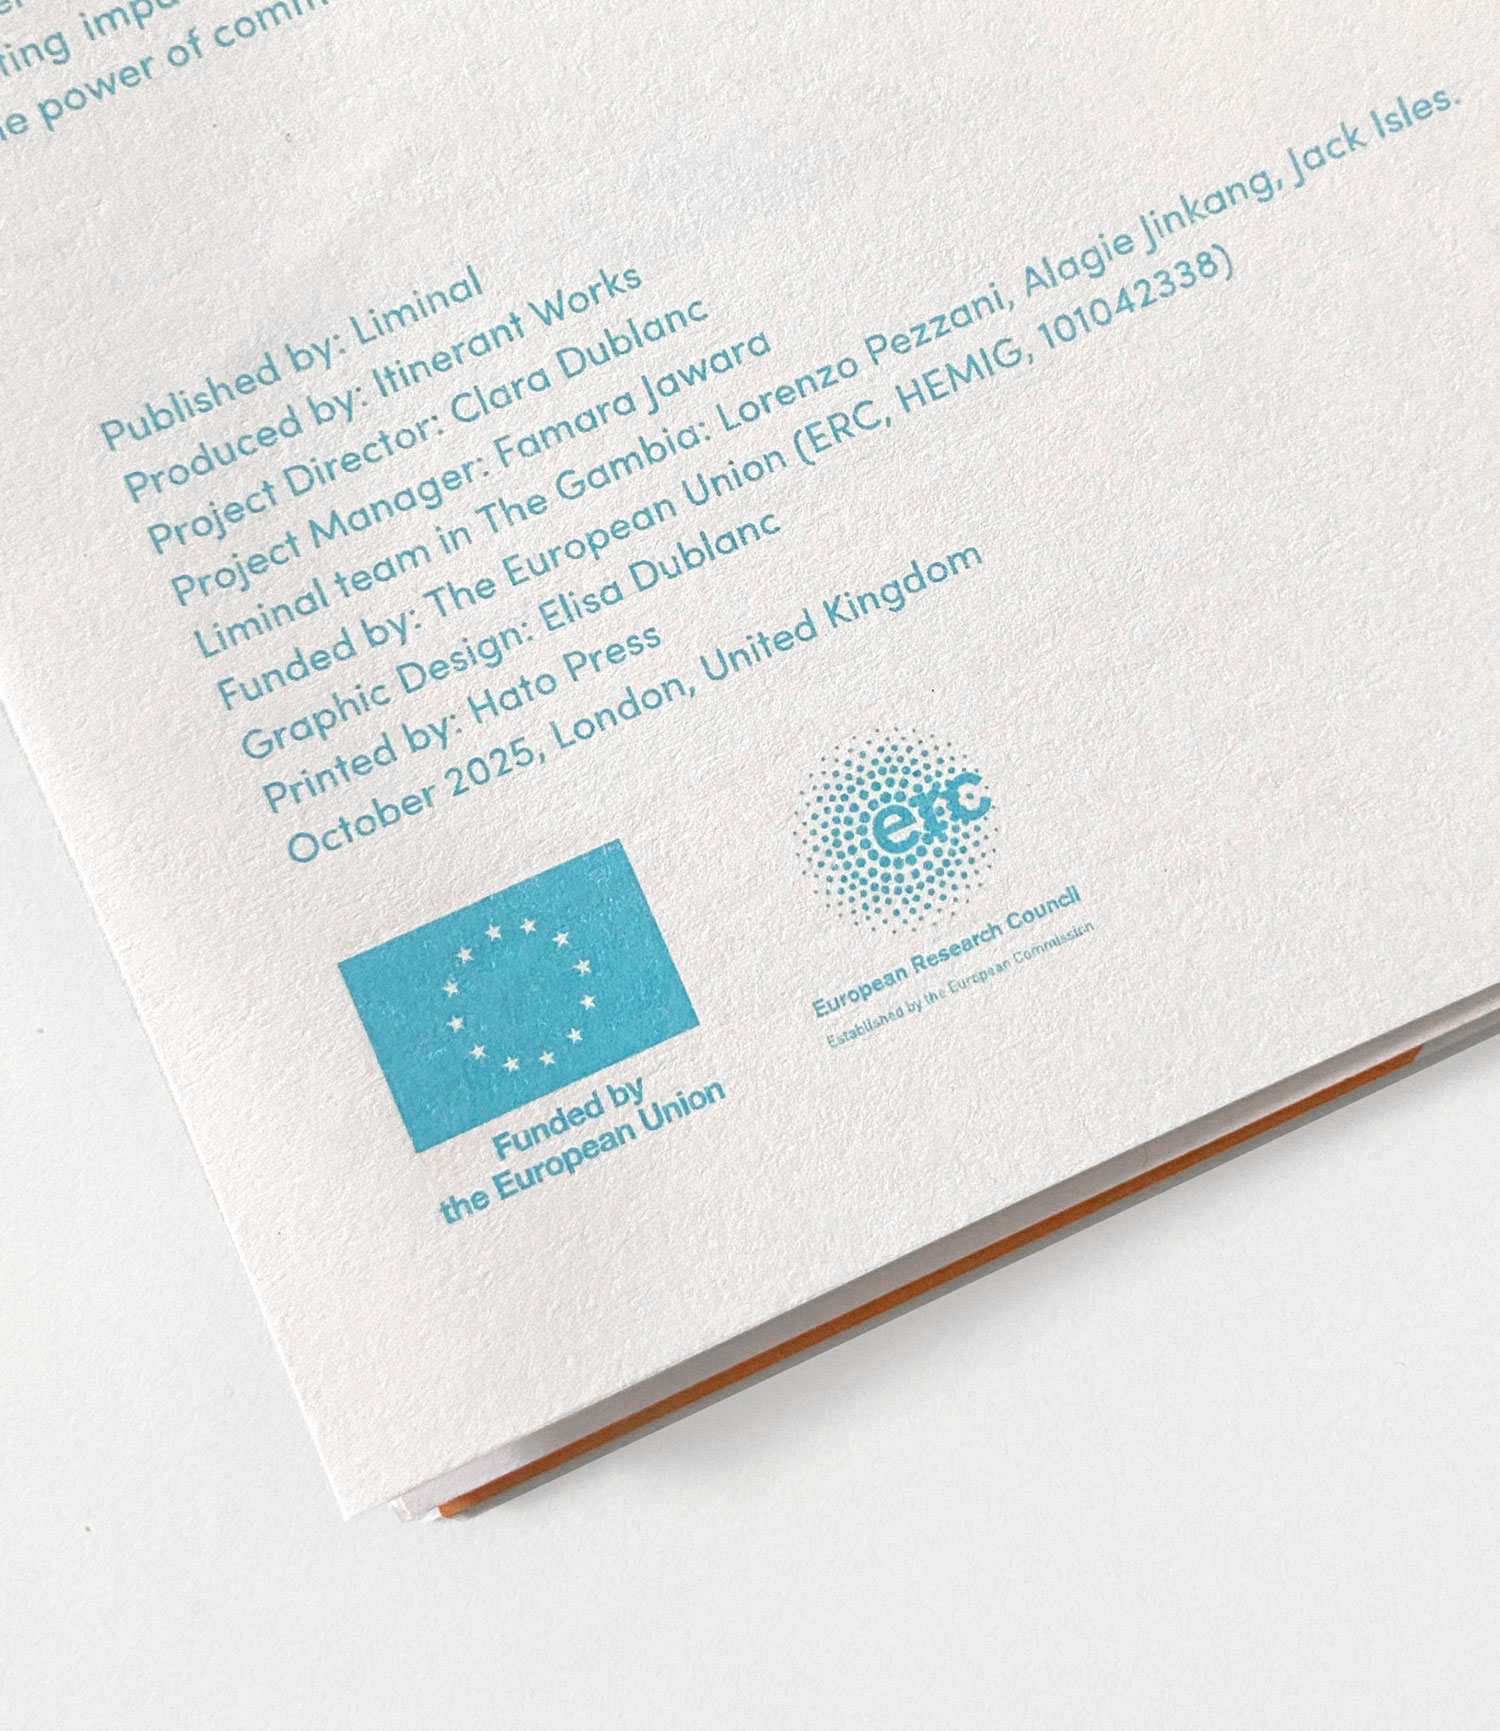 ting
power of
Published by: Liminal
Produced by: Itinerant Works
Project Director: Clara Dublanc
Project Manager: Famara Jawara
Liminal team in The Gambia: Lorenzo Pezzani, Alagie Jinkang, Jack Isles.
Funded by: The European Union (ERC, HEMIG, 101042338)
Graphic Design: Elisa Dublanc
Printed by: Hato Press
October 2025, London, United Kingdom
erc
European Research Council
Established by the European Commission
Funded by
the European Union